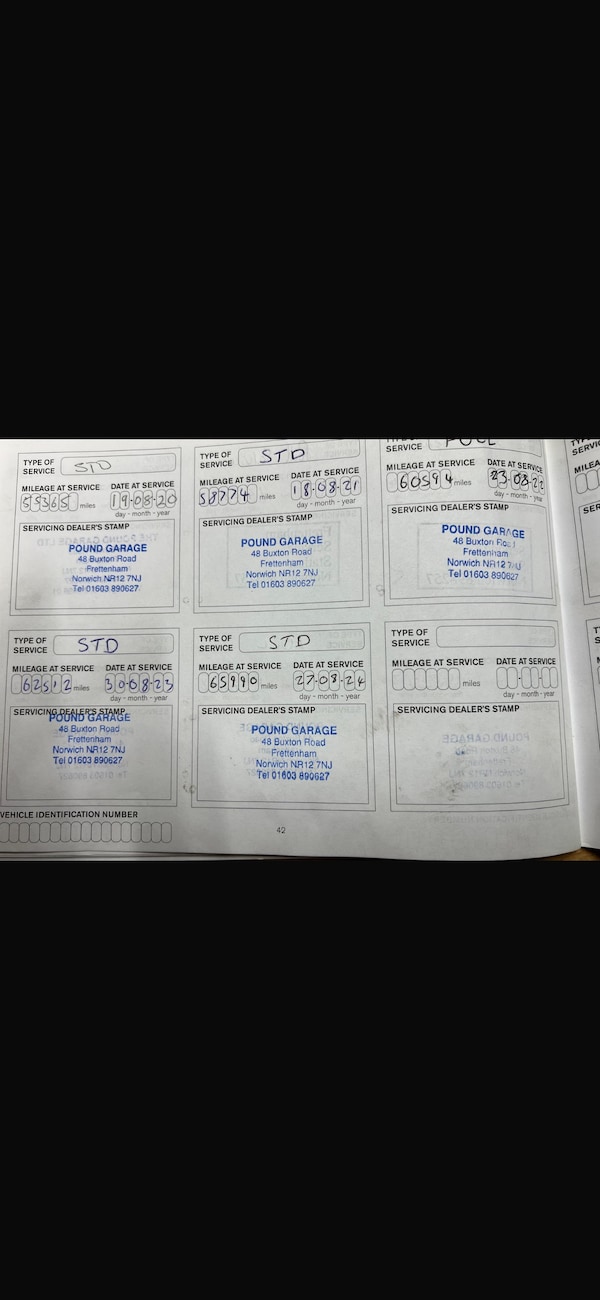 TYPE OF SERVICE STD
MILEAGE AT SERVICE DATE AT SERVICE
55365 miles 19-08-20
day - month - year
SERVICING DEALER'S STAMP
POUND GARAGE
48 Buxton Road
Frettenham
Norwich NR12 7NJ
Tel 01603 890627
TYPE OF SERVICE STD
MILEAGE AT SERVICE DATE AT SERVICE
58774 miles 18-08-21
day - month - year
SERVICING DEALER'S STAMP
POUND GARAGE
48 Buxton Road
Frettenham
Norwich NR12 7NJ
Tel 01603 890627
SERVICE FULL
MILEAGE AT SERVICE DATE AT SERVICE
60594 miles 23-08-22
day - month - year
SERVICING DEALER'S STAMP
POUND GARAGE
48 Buxton Road
Frettenham
Norwich NR12 7NJ
Tel 01603 890627
TYPE OF SERVICE STD
MILEAGE AT SERVICE DATE AT SERVICE
62512 miles 30-08-23
day - month - year
SERVICING DEALER'S STAMP
POUND GARAGE
48 Buxton Road
Frettenham
Norwich NR12 7NJ
Tel 01603 890627
TYPE OF SERVICE STD
MILEAGE AT SERVICE DATE AT SERVICE
65990 miles 27-08-24
day - month - year
SERVICING DEALER'S STAMP
POUND GARAGE
48 Buxton Road
Frettenham
Norwich NR12 7NJ
Tel 01603 890627
TYPE OF SERVICE
MILEAGE AT SERVICE DATE AT SERVICE
miles
day - month - year
SERVICING DEALER'S STAMP
VEHICLE IDENTIFICATION NUMBER
42